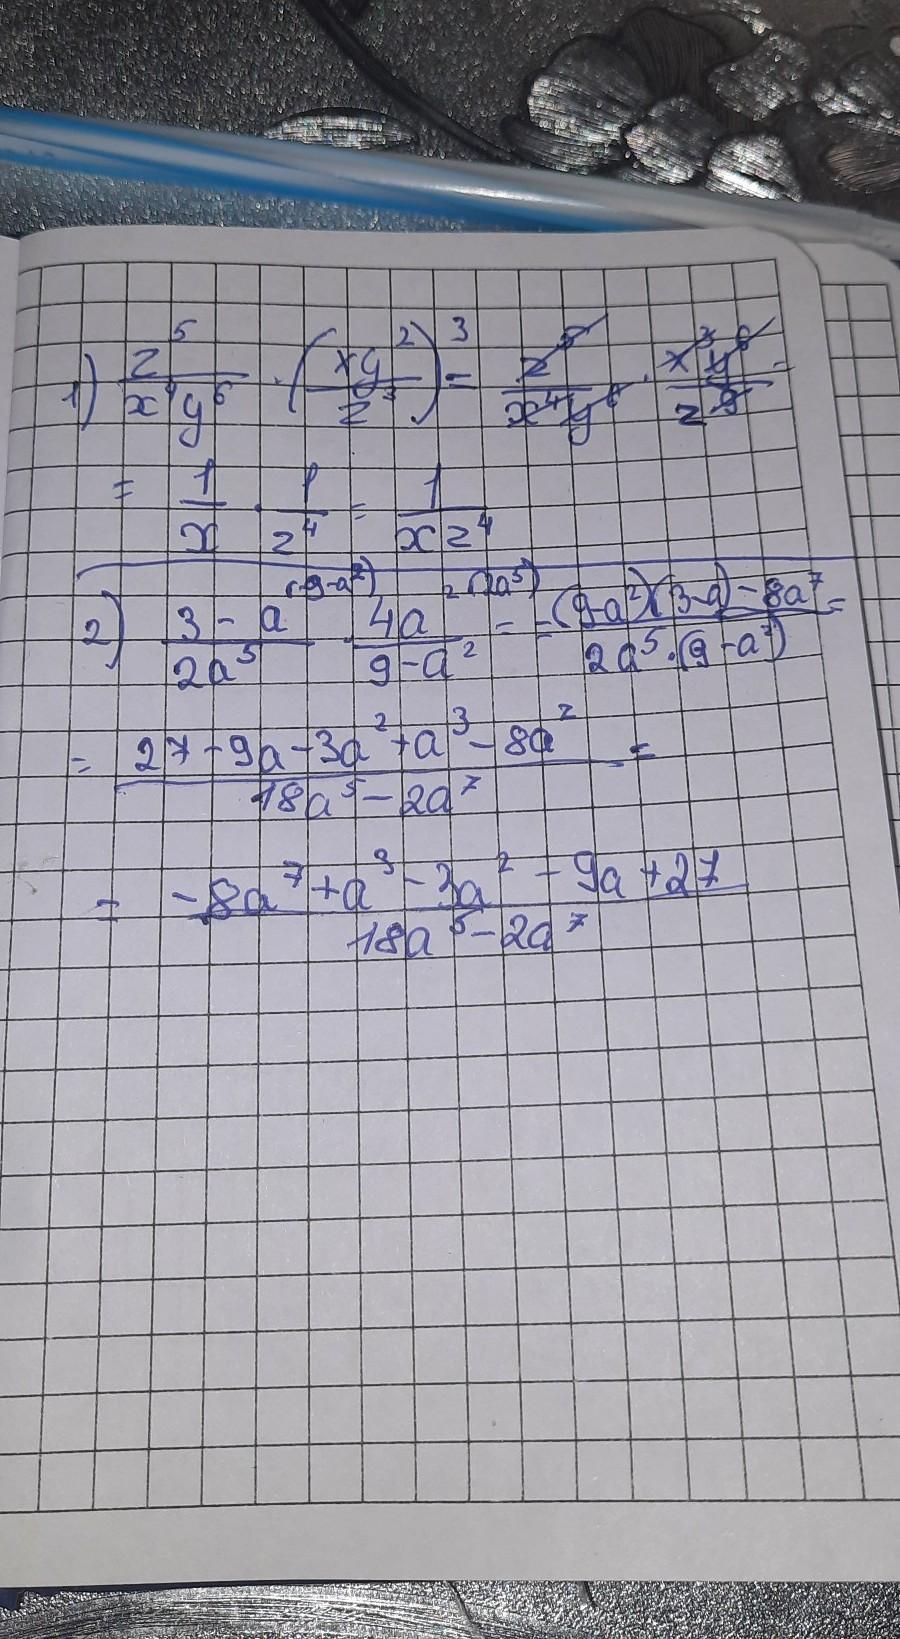 1) z⁵/(x⁴y⁶) · (xy²/z³)³ = z⁵/(x⁴y⁶) · x³y⁶/z⁹ =
= 1/x · 1/z⁴ = 1/(xz⁴)
2) (3 - a)/(2a⁵) (9-a²) · 4a²/(9-a²) (2a⁵) = -((9-a²)(3-a) - 8a⁷)/(2a⁵·(9-a²)) =
= (27 - 9a - 3a² + a³ - 8a²)/(18a⁵ - 2a⁷) =
= (-8a⁷ + a³ - 3a² - 9a + 27)/(18a⁵ - 2a⁷)